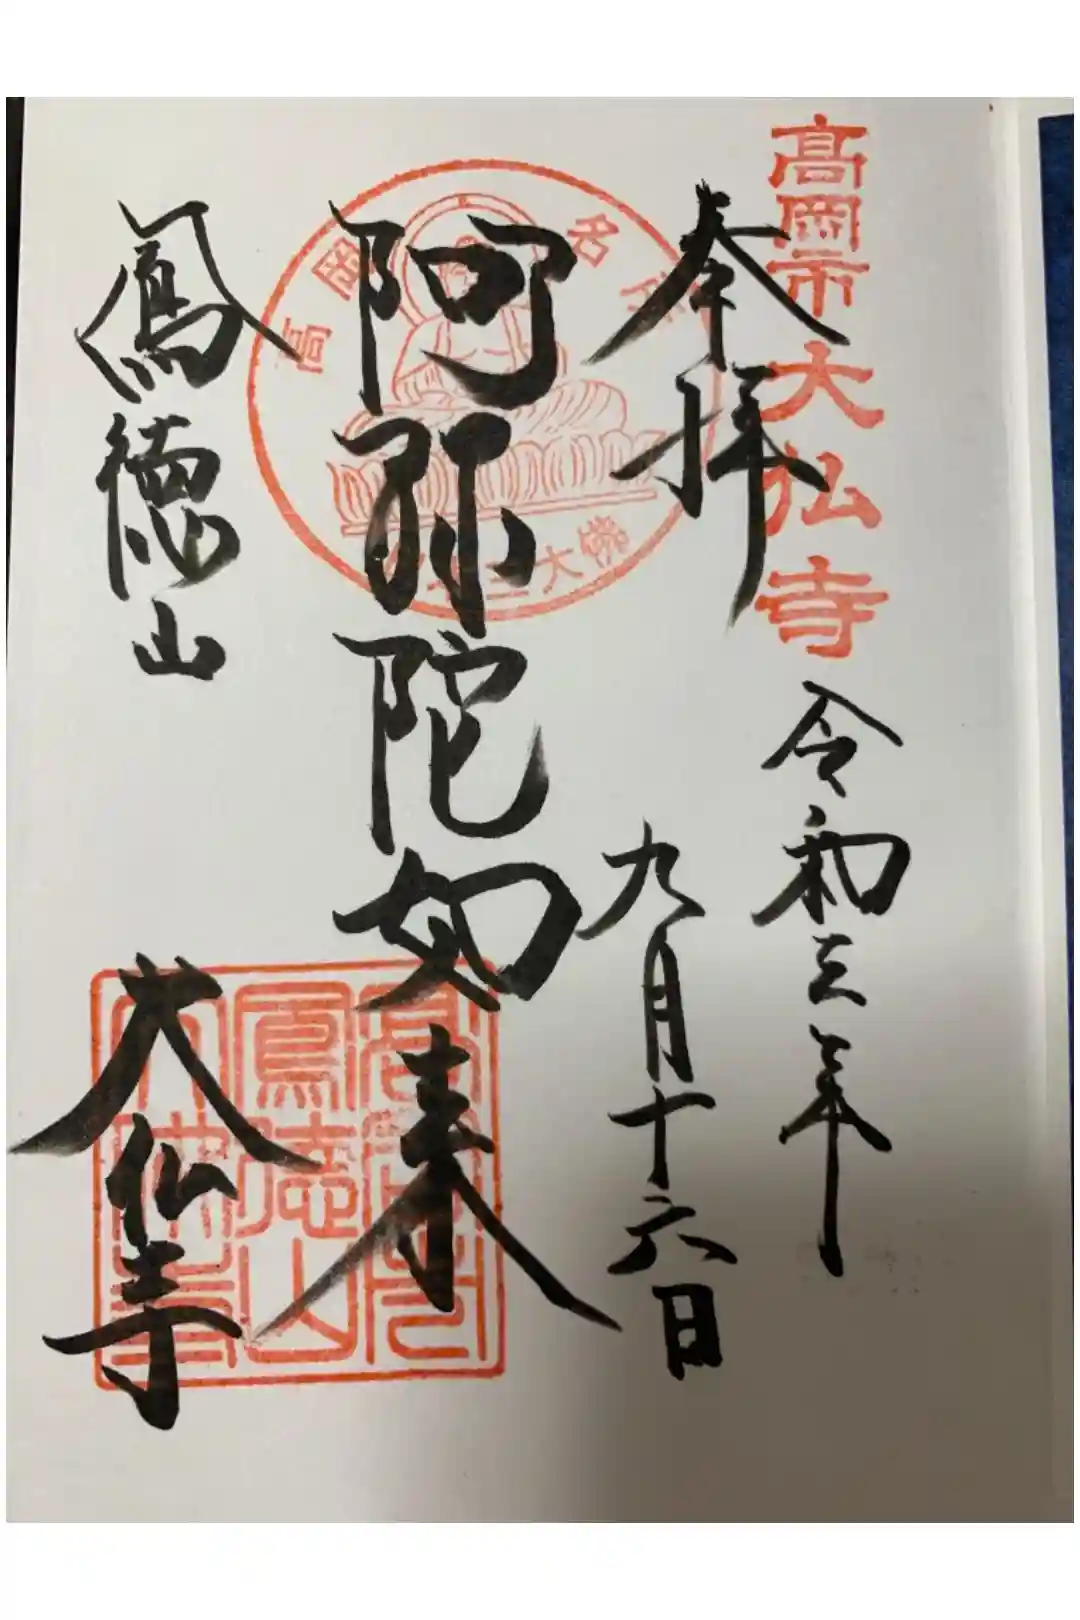 高岡市大仏寺
奉拝
令和三年
九月十六日
阿弥陀如来
鳳徳山
大仏寺
高岡名所
三大佛
高岡
鳳徳山
大佛寺